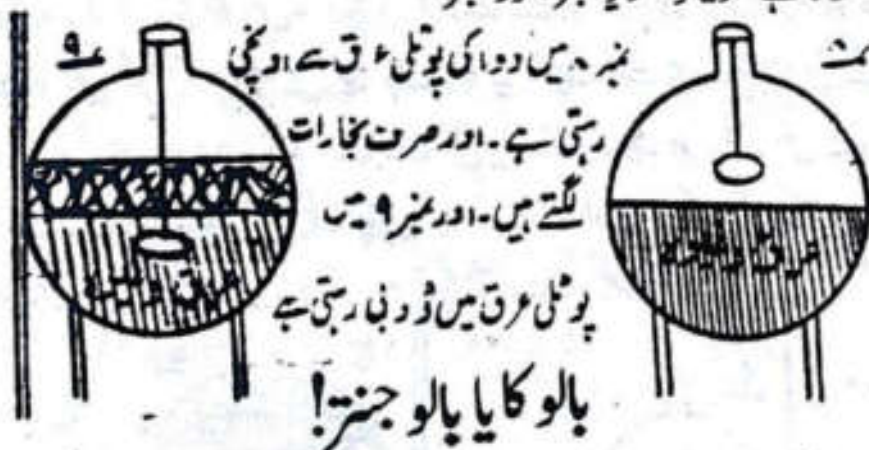 نمبر ۸ میں دوا کی پوٹلی عرق سے اونچی
رہتی ہے۔ اور صرف بخارات
لگتے ہیں۔ اور نمبر ۹ میں
پوٹلی عرق میں ڈوبی رہتی ہے
۸
عرق وغیرہ
۹
بالو کا یا بالو جنتر!